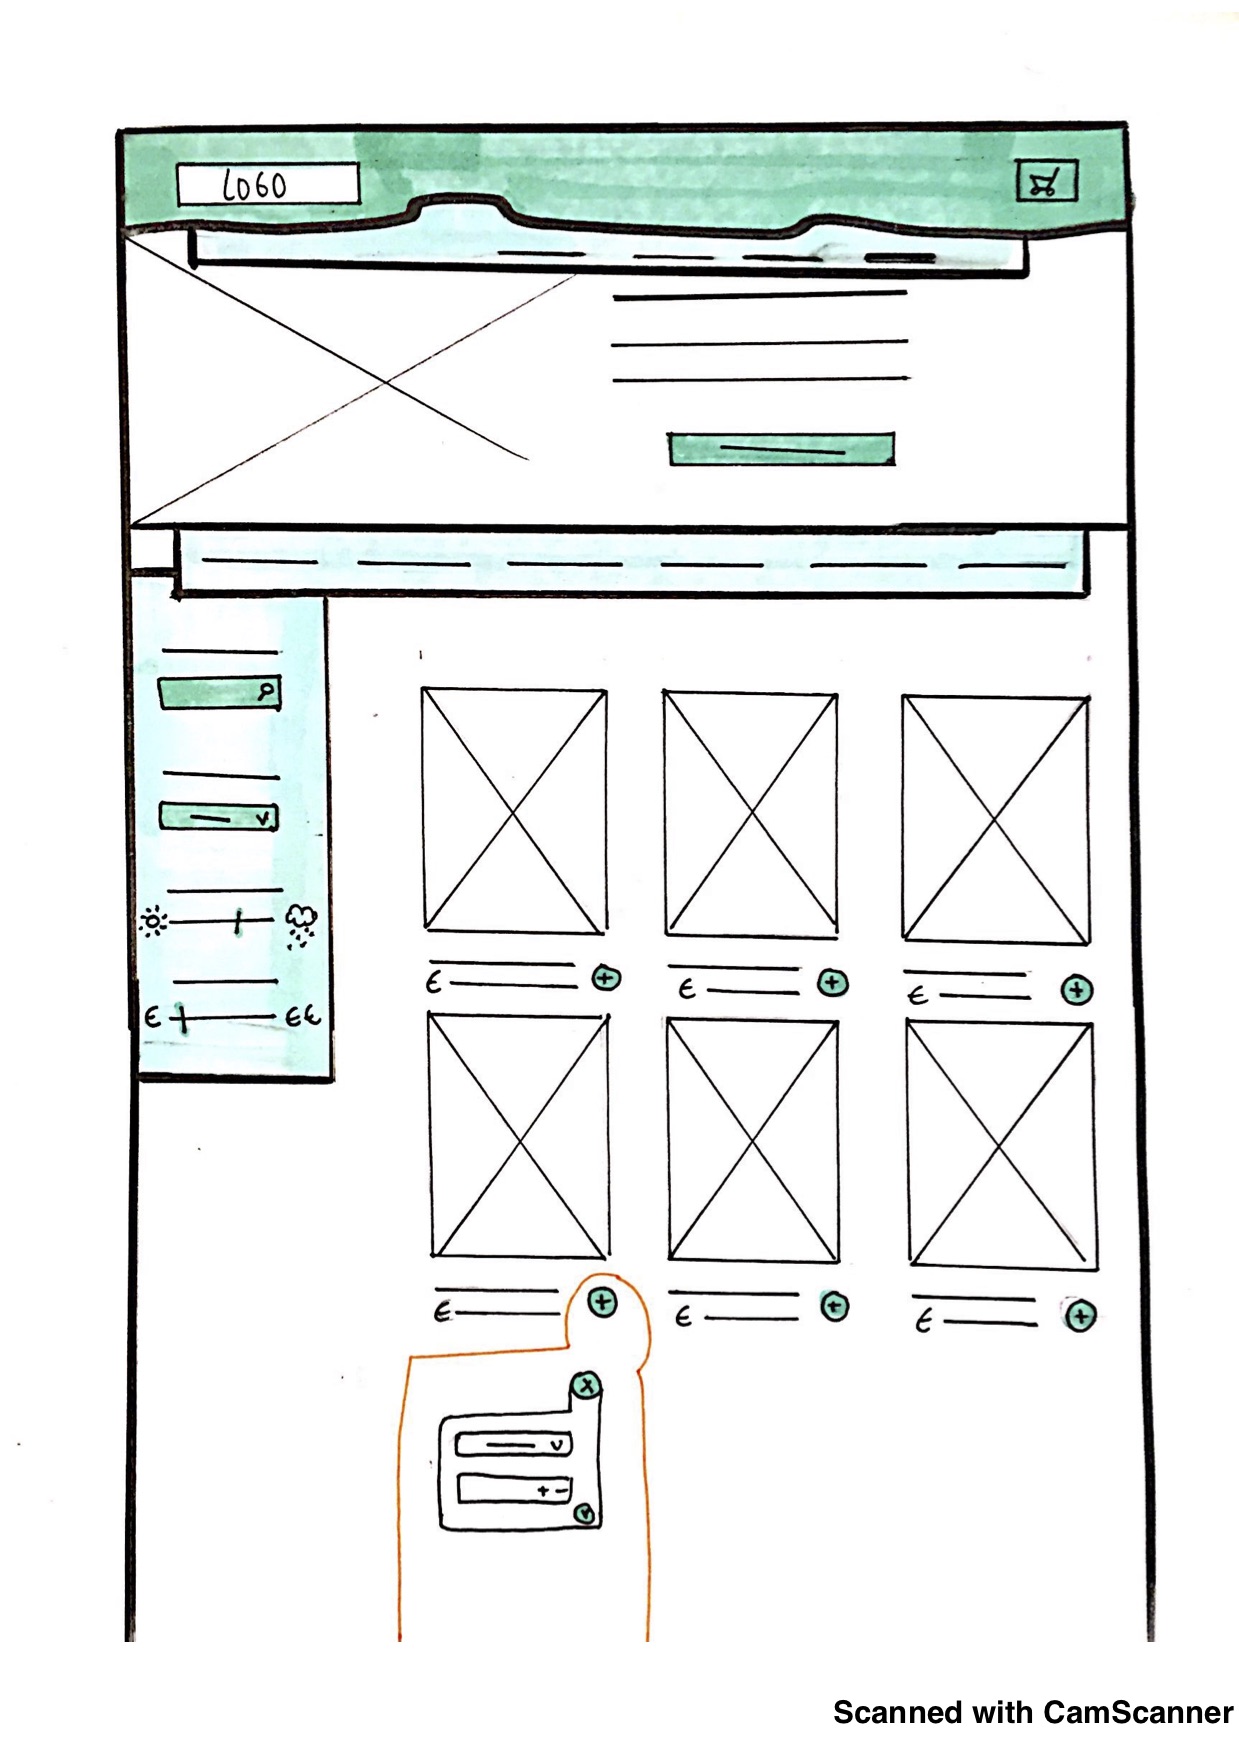 LOGO
€ €€
€ + € + € +
€ + € + € +
X
V
+ -
V
Scanned with CamScanner